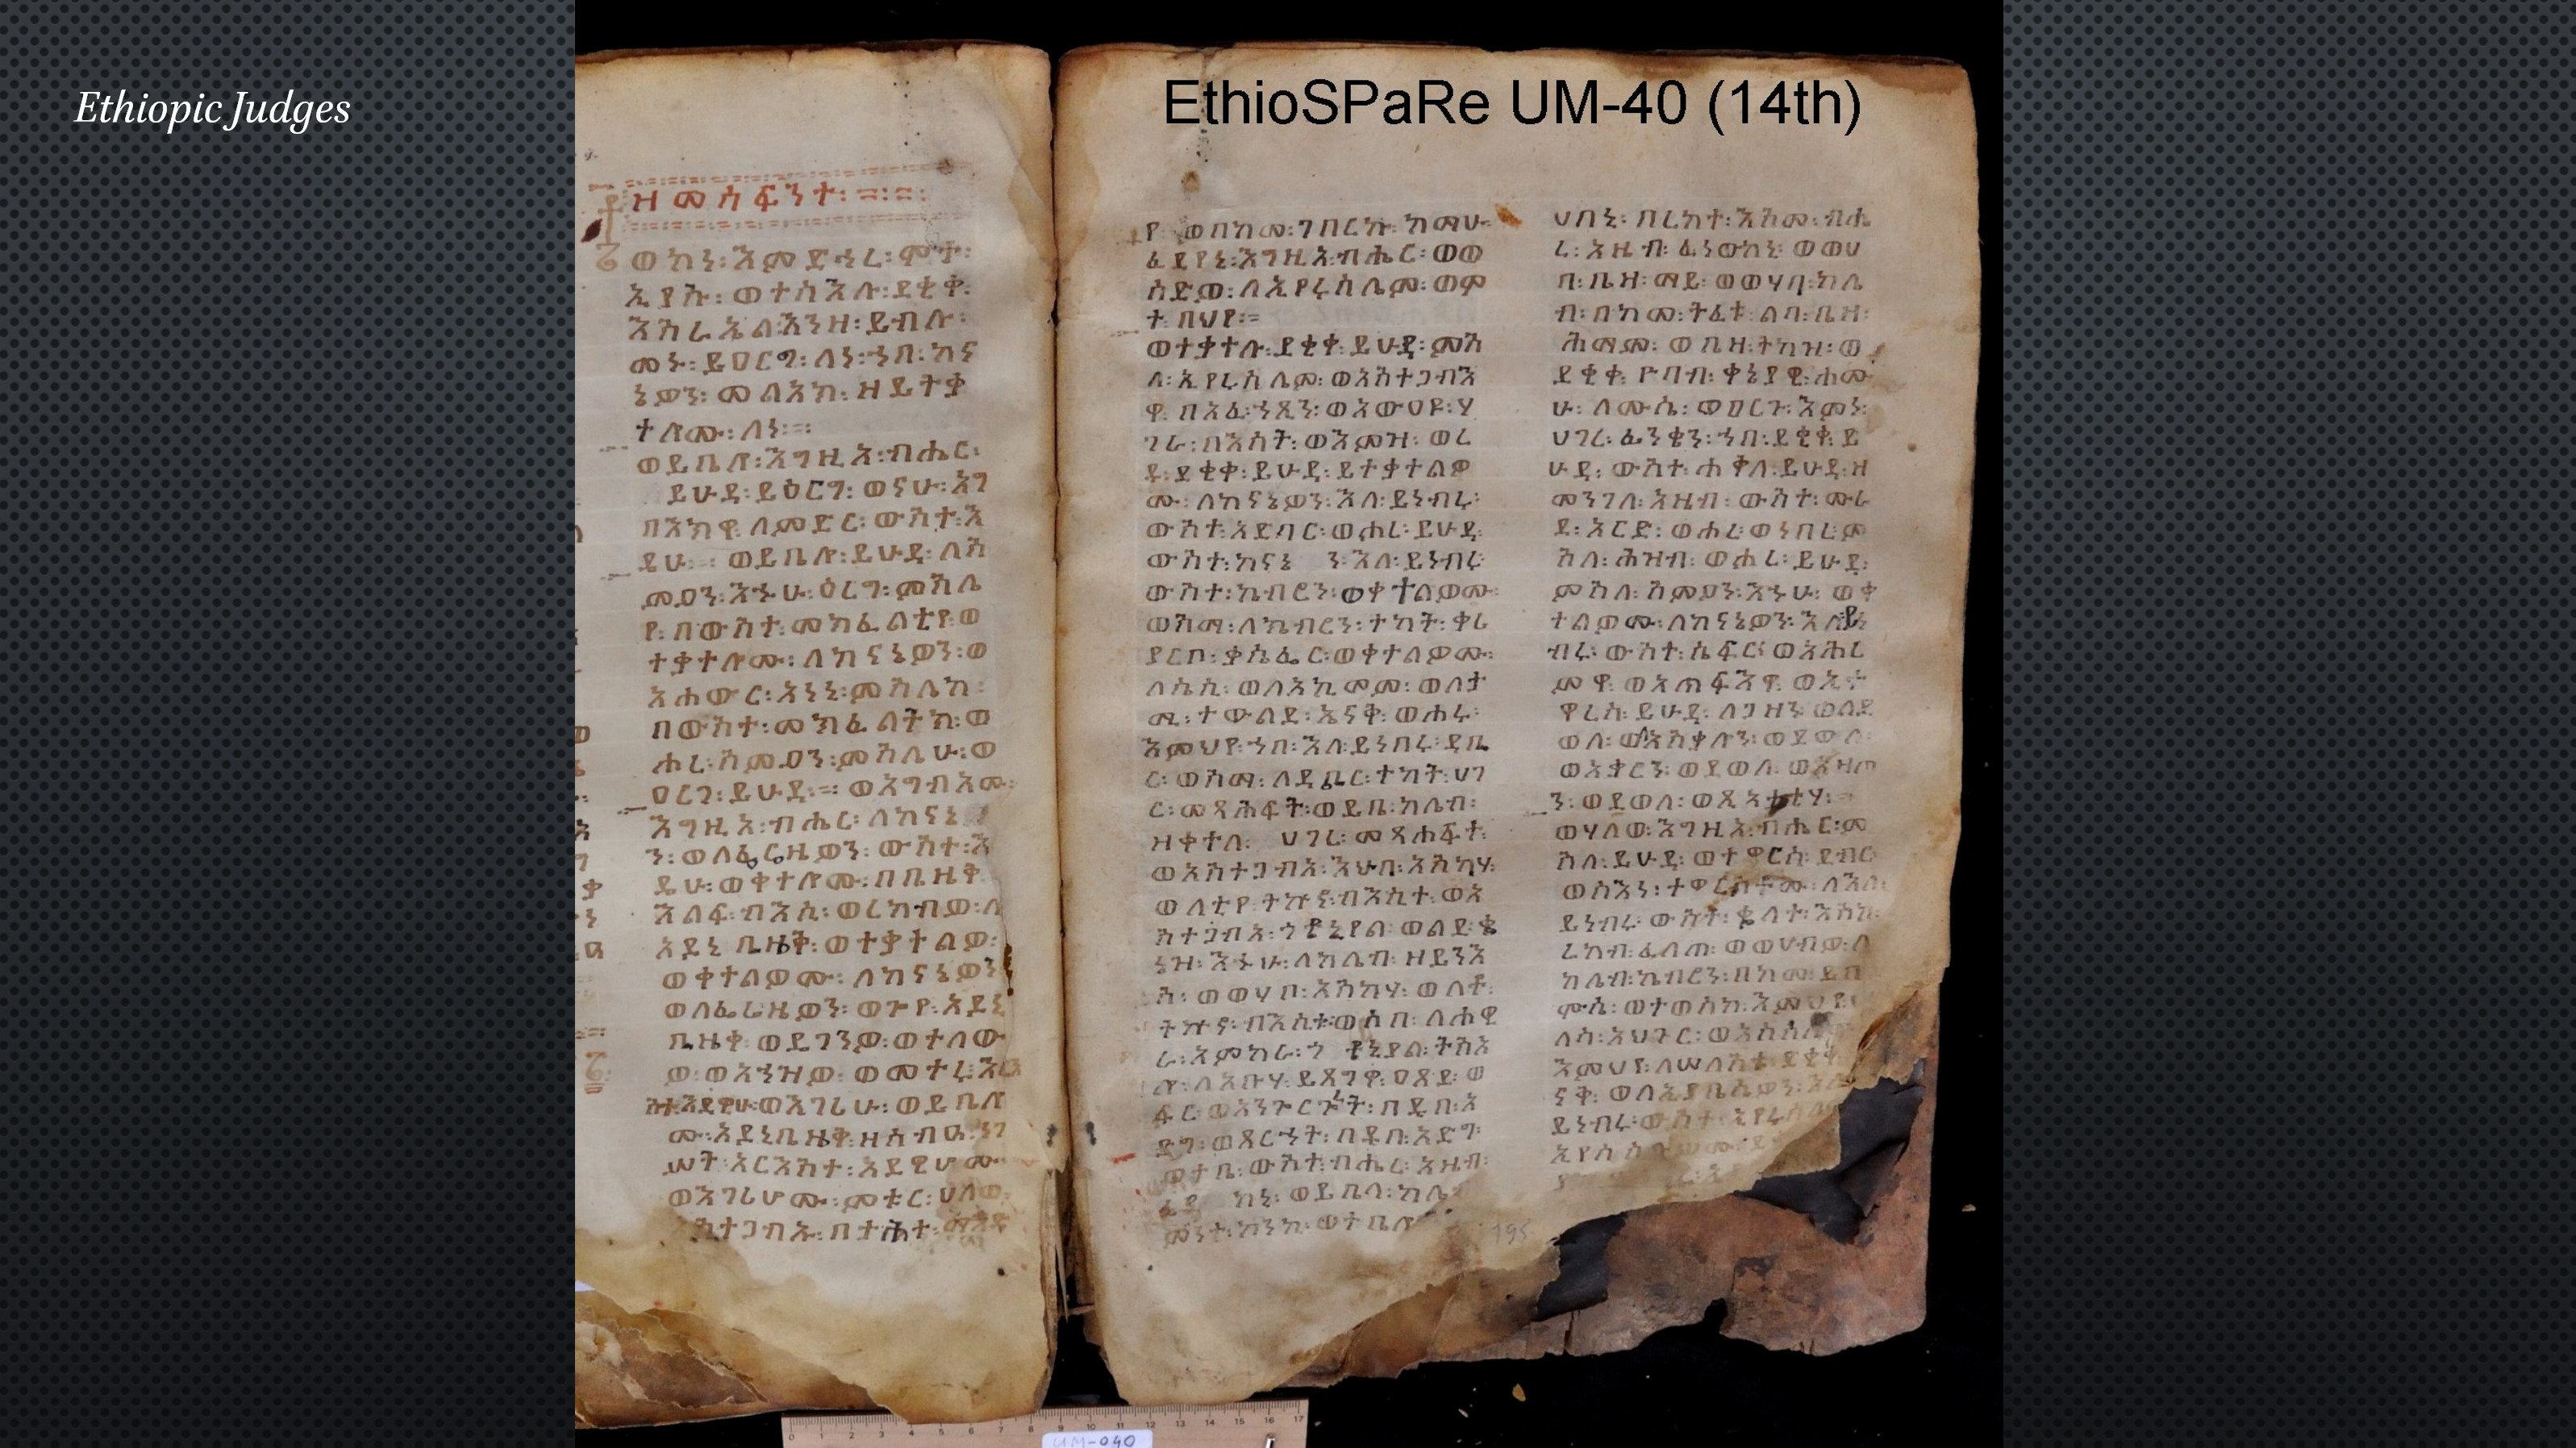 Ethiopic Judges
EthioSPaRe UM-40 (14th)
ዘመሳፍንተ፡
ወኮነ፡እምድኅረ፡ሞተ፡
ኢያሱ፡ወተስእሉ፡ደቂቀ፡
እስራኤል፡እንዘ፡ይብሉ፡
መኑ፡ይዐርግ፡ለነ፡ኀበ፡ከና
ኔዎን፡መልአክ፡ዘይትቃ
ተሎሙ፡ለነ።
ወይቤሎ፡እግዚአ፡ብሔር፡
ይሁዳ፡ይዕርግ፡ወናሁ፡አግ
ባእክዋ፡ለምድር፡ውስተ፡እ
ዴሁ። ወይቤሎ፡ይሁዳ፡ለስ
ምዖን፡እኁሁ፡ዕረግ፡ምስሌ
የ፡በውስተ፡መክፈልትየ፡ወ
ተቃተሎሙ፡ለከናኔዎን፡ወ
አሐውር፡አነኒ፡ምስሌከ፡
በውስተ፡መክፈልትከ፡ወ
ሐረ፡ስምዖን፡ምስሌሁ፡ወ
ዐርገ፡ይሁዳ። ወአግብኦሙ፡
እግዚአ፡ብሔር፡ለከናኔ
ን፡ወለፌርዜዎን፡ውስተ፡እ
ዴሁ፡ወቀተሎሙ፡በቤዜቅ
እልፍ፡ብእሲ፡ወረከብዎ፡ለ
አዶኒ ቤዜቅ፡ወተቃተልዎ፡
ወቀተልዎሙ፡ለከናኔዎን
ወለፌሬዜዎን፡ወጕየ፡አዶኒ
ቤዜቅ፡ወዴገንዎ፡ወተለው
ዎ፡ወአኀዝዎ፡ወመተሩ፡
እደዊሁ፡ወእገሪሁ፡ወይቤሎ
ሙ፡አዶኒቤዜቅ፡ዘሰብዓ፡ነገ
ሥት፡አርእስተ፡እደዊሆሙ
ወእገሪሆሙ፡ምቱር፡ሀለው፡
ያስተጋብኡ፡በታሕተ፡
የ፡ ወበከመ፡ገበርኩ፡ከማሁ
ፈደየኒ፡እግዚአ፡ብሔር፡ወወ
ሰድዎ፡ለኢየሩሳሌም፡ወሞ
ተ፡በህየ።
ወተቃተሉ፡ደቂቀ፡ይሁዳ፡ምስ
ለ፡ኢየሩሳሌም፡ወአስተጋብእ
ዋ፡በአፈ፡ኀጺን፡ወአውዐዩ፡ሃ
ገራ፡በእሳት፡ወእምዝ፡ወረ
ዱ፡ደቂቀ፡ይሁዳ፡ይትቃተልዎ
ሙ፡ለከናኔዎን፡እለ፡ይነብሩ፡
ውስተ፡አድባር፡ወሐረ፡ይሁዳ፡
ውስተ፡ከናኔ ን፡እለ፡ይነብሩ፡
ውስተ፡ኬብሮን፡ወቀተልዎሙ፡
ወስማ፡ለኬብሮን፡ትካት፡ቀሪ
ያርቦ፡ቃሴፌር፡ወቀተልዎሙ፡
ለሴሲ፡ወለአኪመም፡ወለታ
ሚ፡ተውልደ፡ኤናቅ፡ወሐሩ፡
እምህየ፡ኀበ፡እለ፡ይነብሩ፡ዳቤ
ር፡ወስማ፡ለዳቤር፡ትካት፡ሀገ
ር፡መጻሕፍት፡ወይቤ፡ካሌብ፡
ዘቀተለ፡ ሀገረ፡መጻሐፍተ፡
ወአስተጋብአ፡እሁበ፡አስካሃ፡
ወለቲየ፡ትኩኖ፡ብእሲተ፡ወአ
ስተጋብአ፡ጎቶኒያል፡ወልደ፡ቄ
ኔዝ፡እኁሁ፡ለካሌብ፡ዘይንእ
ስ፡ወወሃቦ፡አስካሃ፡ወለቶ፡
ትኩኖ፡ብእሲቶ፡ወሶበ፡ለሐዊ
ራ፡አምከራ፡ጎ ቶኒያል፡ትስአ
ሎ፡ለአቡሃ፡ይጸግዋ፡ዐጸደ፡ወ
ፍር፡ወአንጐርጐት፡በዲበ፡አ
ድግ፡ወጸርኀት፡በዲበ፡አድግ፡
ወታቤ፡ውስተ፡ብሔረ፡አዜብ፡
ከኒ፡ወይቤላ፡ካሌ
ምንተ፡ኮንኪ፡ወትቤሎ
195
ሀበኒ፡በረከተ፡እስመ፡ብሔ
ረ፡አዜብ፡ፈነውከኒ፡ወወሀ
በ፡ቤዛ፡ማይ፡ወወሃባ፡ካሌ
ብ፡በከመ፡ትፈቱ፡ልባ፡ቤዛ፡
ሕማም፡ወቤዛ፡ትካዝ፡ወ
ደቂቀ፡ዮባብ፡ቀኔያዊ፡ሐሙ
ሁ፡ለሙሴ፡ወዐርጉ፡እምነ፡
ሀገረ፡ፊንቄን፡ኀበ፡ደቂቀ፡ይ
ሁዳ፡ውስተ፡ሐቅለ፡ይሁዳ፡ዘ
መንገለ፡አዜብ፡ውስተ፡ሙራ
ደ፡አርድ፡ወሐረ፡ወነበረ፡ም
ስለ፡ሕዝብ፡ወሐረ፡ይሁዳ፡
ምስለ፡ስምዖን፡እኁሁ፡ወቀ
ተልዎሙ፡ለከናኔዎን፡እለይነ
ብሩ፡ውስተ፡ሴፍር፡ወአሕረ
ምዋ፡ወአጥፍእዋ፡ወኢተ
ዋረሰ፡ይሁዳ፡ለጋዛን፡ወለደ
ወላ፡ወለአስቃሎን፡ወደወላ፡
ወአቃሮን፡ወደወላ፡ወአዛጦ
ን፡ወደወላ፡ወጺአተቲሃ።
ወሃለወ፡እግዚአ፡ብሔር፡ም
ስለ፡ይሁዳ፡ወተዋርሰ፡ደብረ
ወስእነ፡ተዋርሶቶሙ፡ለእለ፡
ይነብሩ፡ውስተ፡ቈላተ፡እስመ፡
ሬካብ፡ፈለጠ፡ወወሀብዎ፡ለ
ካሌብ፡ኬብሮን፡በከመ፡ይቤ
ሙሴ፡ወተወሰከ፡እምህየ፡
ለሰ፡አህጉር፡ወአሰሰለ
እምህየ፡ለሠለስቱ፡ደቂቀ
ናቅ፡ወለኢያቤሴዎን፡
ይነብሩ፡ውስተ፡ኢየሩሳ
UM-040